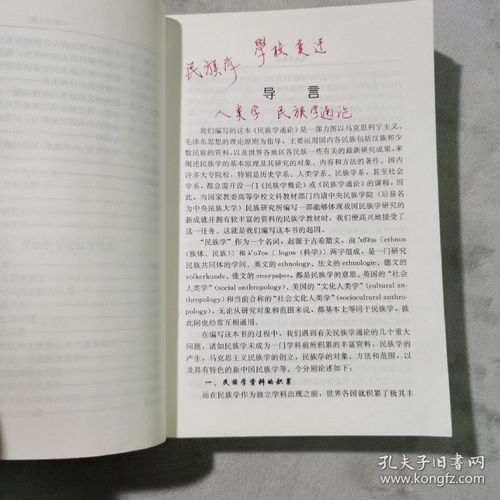 民族学 學校变迁
导言
人类学 民族学通论
我们编写的这本《民族学通论》是一部力图以马克思列宁主义、
毛泽东思想的理论原则为指导，主要运用国内各民族包括汉族和少
数民族的资料，以及世界各地区各民族一些有关的最新研究成果，来
阐述民族学的基本原理及其研究的对象、内容和方法的著作。国内
许多大专院校，特别是历史学系、人类学系、民族学系，甚至社会
学系，都急需开设一门《民族学概论》或《民族学通论》的课程，因
此，当国家教委高等学校文科教材部门约请中央民族学院（后易名
为中央民族大学）民族研究所编写一部能够体现我国民族学研究的
新成就并拥有较丰富的资料的民族学教材时，我们便高兴地接受了
这一任务。这就是我们编写本书的起因。
“民族学”作为一个名词，起源于古希腊文，由
（族体、民族）〕和 〔logos（科学）〕两字组成，是一门研究
民族共同体的学问。英文的 ethnology、法文的 ethnologie、德文的
völkerkunde、俄文的 этнография，都是民族学的意思。英国的“社会
人类学”（social anthropology）、美国的“文化人类学”（cultural an-
thropology）和当前合称的“社会文化人类学”（sociocultural anthro-
pology），无论从研究对象和范围来说，都基本上等同于民族学，彼
此间也经常互相通用。
在编写本书的过程中，我们遇到有关民族学通论的几个重大
问题，诸如民族学未成为一门学科前所积累的丰富资料，民族学的
产生，马克思主义民族学的创立，民族学的对象、方法和范围，以
及具有特色的新中国民族学等。今分别论述如下：
一、民族学资料的积累
远在民族学作为独立学科出现之前，世界各国就积累了极其丰
孔夫子旧书网
www.kongfz.com